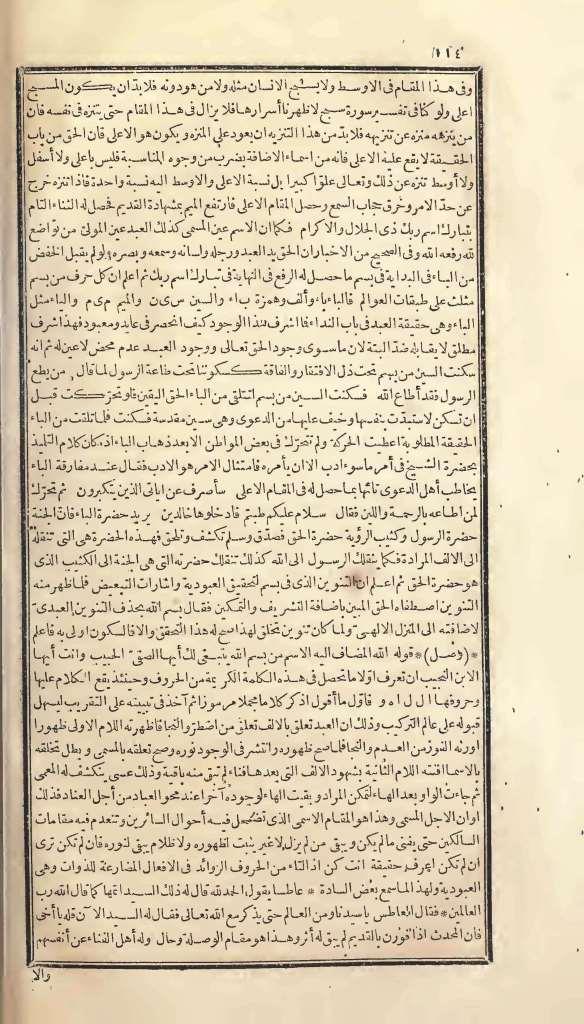 ١١٤
وفى هذا المقام فى الاوسط ولا يسبح الانسان مثله ولا من هو دونه فلا بد ان يكون المسبح
اعلى ولو كنا فى تفسير سورة سبح لاظهرنا أسرارها فلا يزال فى هذا المقام حتى يتنزه فى نفسه فان
من ينزهه منزه عن تنزيهه فلا بد من هذا التنزيه ان يعود على المنزه ويكون هو الاعلى فان الحق من باب
الحقيقة لا يقع عليه الاعلى فانه من اسماء الاضافة بضرب من وجوه المناسبة فليس باعلى ولا أسفل
ولا أوسط تنزه عن ذلك وتعالى علوّا كبيرا بل نسبة الاعلى والاوسط اليه نسبة واحدة فاذا تنزه خرج
عن حدّ الامر وخرق حجاب السمع وحصل المقام الاعلى فارتفع الميم بمشاهدة القديم فحصل له الثناء التام
بتبارك اسم ربك ذى الجلال والاكرام فكما ان الاسم عين المسمى كذلك العبد عين المولى من تواضع
لله رفعه الله وفى الصحيح من الاخبار ان الحق يد العبد ورجله ولسانه وسمعه وبصره ولو لم يقبل الخفض
من الباء فى البداية فى بسم ما حصل له الرفع فى النهاية فى تبارك اسم ربك ثم اعلم ان كل حرف من بسم
مثلث على طبقات العوالم فالباء باء وألف وهمزة والسين س ى ن والميم م ى م والياء مثل
الباء وهى حقيقة العبد فى باب النداء فما اشرف هذا الوجود كيف انحصر فى عابد ومعبود فهذا شرف
مطلق لا يقابله ضدّ البتة لان ما سوى وجود الحق تعالى ووجود العبد عدم محض لا عين له ثم انه
سكنت السين من بسم تحت ذل الافتقار والفاقة كسكوننا تحت طاعة الرسول لما قال من يطع
الرسول فقد أطاع الله فسكنت السين من بسم لتتلقى من الباء الحق اليقين فلو تحرّكت قبل
ان تسكن لاستبدّت بنفسها وخيف عليها من الدعوى وهى سين مقدسة فسكنت فلما تلقت من الباء
الحقيقة المطلوبة اعطيت الحركة ولم تتحرّك فى بعض المواطن الا بعد ذهاب الباء اذ كان كلام التلميذ
بحضرة الشيخ فى أمر ما سوء ادب الا ان يأمره فامتثال الامر هو الادب فقال عند مفارقة الباء
يخاطب أهل الدعوى تائها بما حصل له فى المقام الاعلى سأصرف عن اياتى الذين يتكبرون ثم تحرّك
لمن اطاعه بالرحمة واللين فقال سلام عليكم طبتم فادخلوها خالدين يريد حضرة الباء فان الجنة
حضرة الرسول وكثيب الرؤية حضرة الحق فصدّق وسلم تكشف وتلحق فهذه الحضرة هى التى تنقله
الى الالف المرادة فكما ينقلك الرسول الى الله كذلك تنقلك حضرته التى هى الجنة الى الكثيب الذى
هو حضرة الحق ثم اعلم ان التنوين الذى فى بسم لتحقيق العبودية واشارات التبعيض فلما ظهر منه
التنوين اصطفاه الحق المبين باضافة التشريف والتمكين فقال بسم الله بحذف التنوين العبدى
لاضافته الى المنزل الالهى ولما كان تنوين تخلق لهذا صح له هذا التحقق والا فالسكون اولى به فاعلم
* (وصل) * قوله الله المضاف اليه الاسم من بسم الله ينبغى لك أيها الصفىّ الحبيب وانت أيها
الابن النجيب ان تعرف اوّلا ما تحصل فى هذه الكلمة الكريمة من الحروف وحينئذ يقع الكلام عليها
وحروفها ا ل ل ا ه و فاوّل ما أقول اذ كر كلاما مجملا مرموزا ثم آخذ فى تبيينه على التقريب ليسهل
قبوله على عالم التركيب وذلك ان العبد تعلق بالالف تعلق من اضطر والتجا فاظهرته اللام الاولى ظهورا
اورثه الفوز من العدم والنجا فلما صح ظهوره وانتشر فى الوجود نوره وصح تعلقه بالمسمى وبطل تخلقه
بالاسما افنته اللام الثانية بشهود الالف التى بعدها فناء لم تبق منه باقية وذلك عسى ينكشف له المعمى
ثم جاءت الواو بعد الهاء لتمكن المراد وبقيت الهاء لوجوده آخرا عند محو العباد من أجل العناد فذلك
اوان الاجل المسمى وهذا هو المقام الاسمى الذى تضمحل فيه أحوال السائرين وتنعدم فيه مقامات
السالكين حتى يفنى ما لم يكن ويبقى من لم يزل لا غير يثبت لظهوره ولا ظلام يبقى لنوره فان لم تكن ترى
ان لم تكن اعرف حقيقة انت كن اذ التاء من الحروف الزوائد فى الافعال المضارعة للذوات وهى
العبودية ولهذا لما سمع بعض السادة * عاطسا يقول الحمد لله قال له ذلك السيد اتمها كما قال الله رب
العالمين * فقال العاطس يا سيدنا ومن العالم حتى يذكر مع الله تعالى فقال له السيد الآن قله يا أخى
فان المحدث اذا قورن بالقديم لم يبق له أثر وهذا هو مقام الوصلة وحال وله أهل الفناء عن أنفسهم
والا